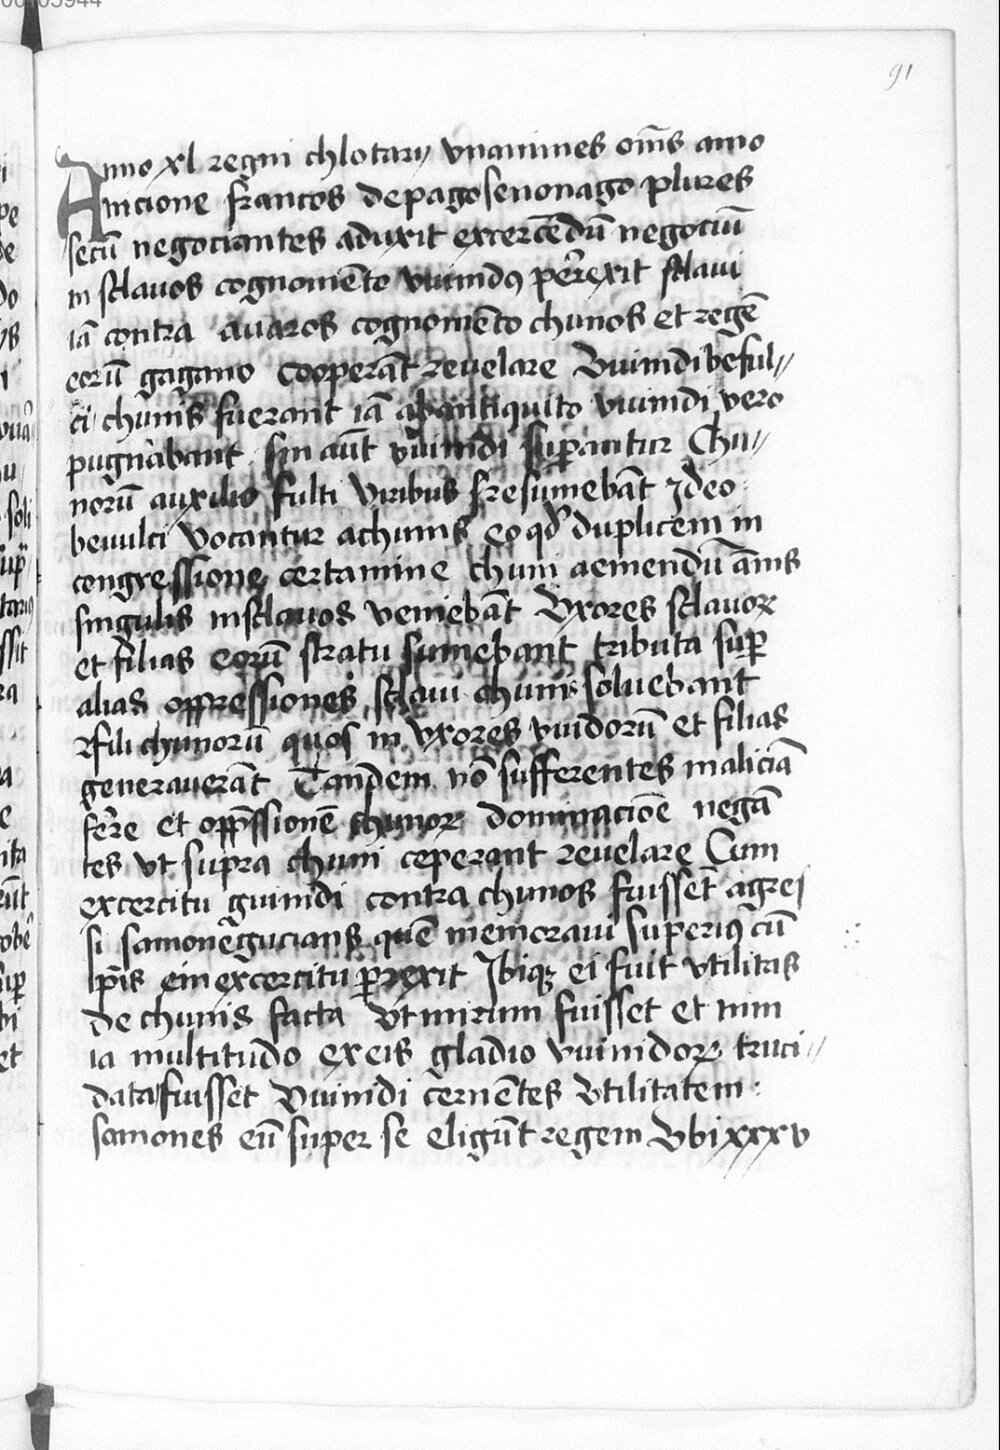 91
Anno xl regni chlotarij vnanimes om̄s amo
nicione francos de pago senonago plures
secū negociantes aduxit excercēdū negociū
in sclauos cognomēto vuindꝯ perrexit sclaui
iā contra auaros cognomēto chunos et regē
eorū gagano cooperāt reuelare Vuindi beful〃
ci chunis fuerant iā abantiquito vuindi vero
pugnabant sin aūt vuindi superantur Chu〃
norū auxilio fulti viribus fresumebāt Ideo
beuulci vocantur achunis eo qd̕ duplicem in
congressione certamine chuni aemendū āmis
singulis insclauos veniebāt Vxores sclauoꝝ
et filias eorū stratu sumebant tributa suꝑ
alias oppressiones sclaui chunis soluebant
fili chunorū quos in vxores vuidorū et filias
generauerāt Tandem nō sufferentes maliciā
ferre et opp̄ssionē chunoꝝ dominaciōe negā
tes vt supra chuni ceperant reuelare Cum
excercitu guindi contra chunos fuissēt agres
si samone gucians quē memoraui superiꝯ cū
ip̄is ein excercitu ꝑrexit Ibiqꝫ ei fuit vtilitas
de chunis facta vt mirum fuisset et nim
ia multitudo ex eis gladio vuinidoꝝ truci〃
data fuisset Vuinidi cernētes vtilitatem
samones eū super se eligūt regem Vbi xxxv